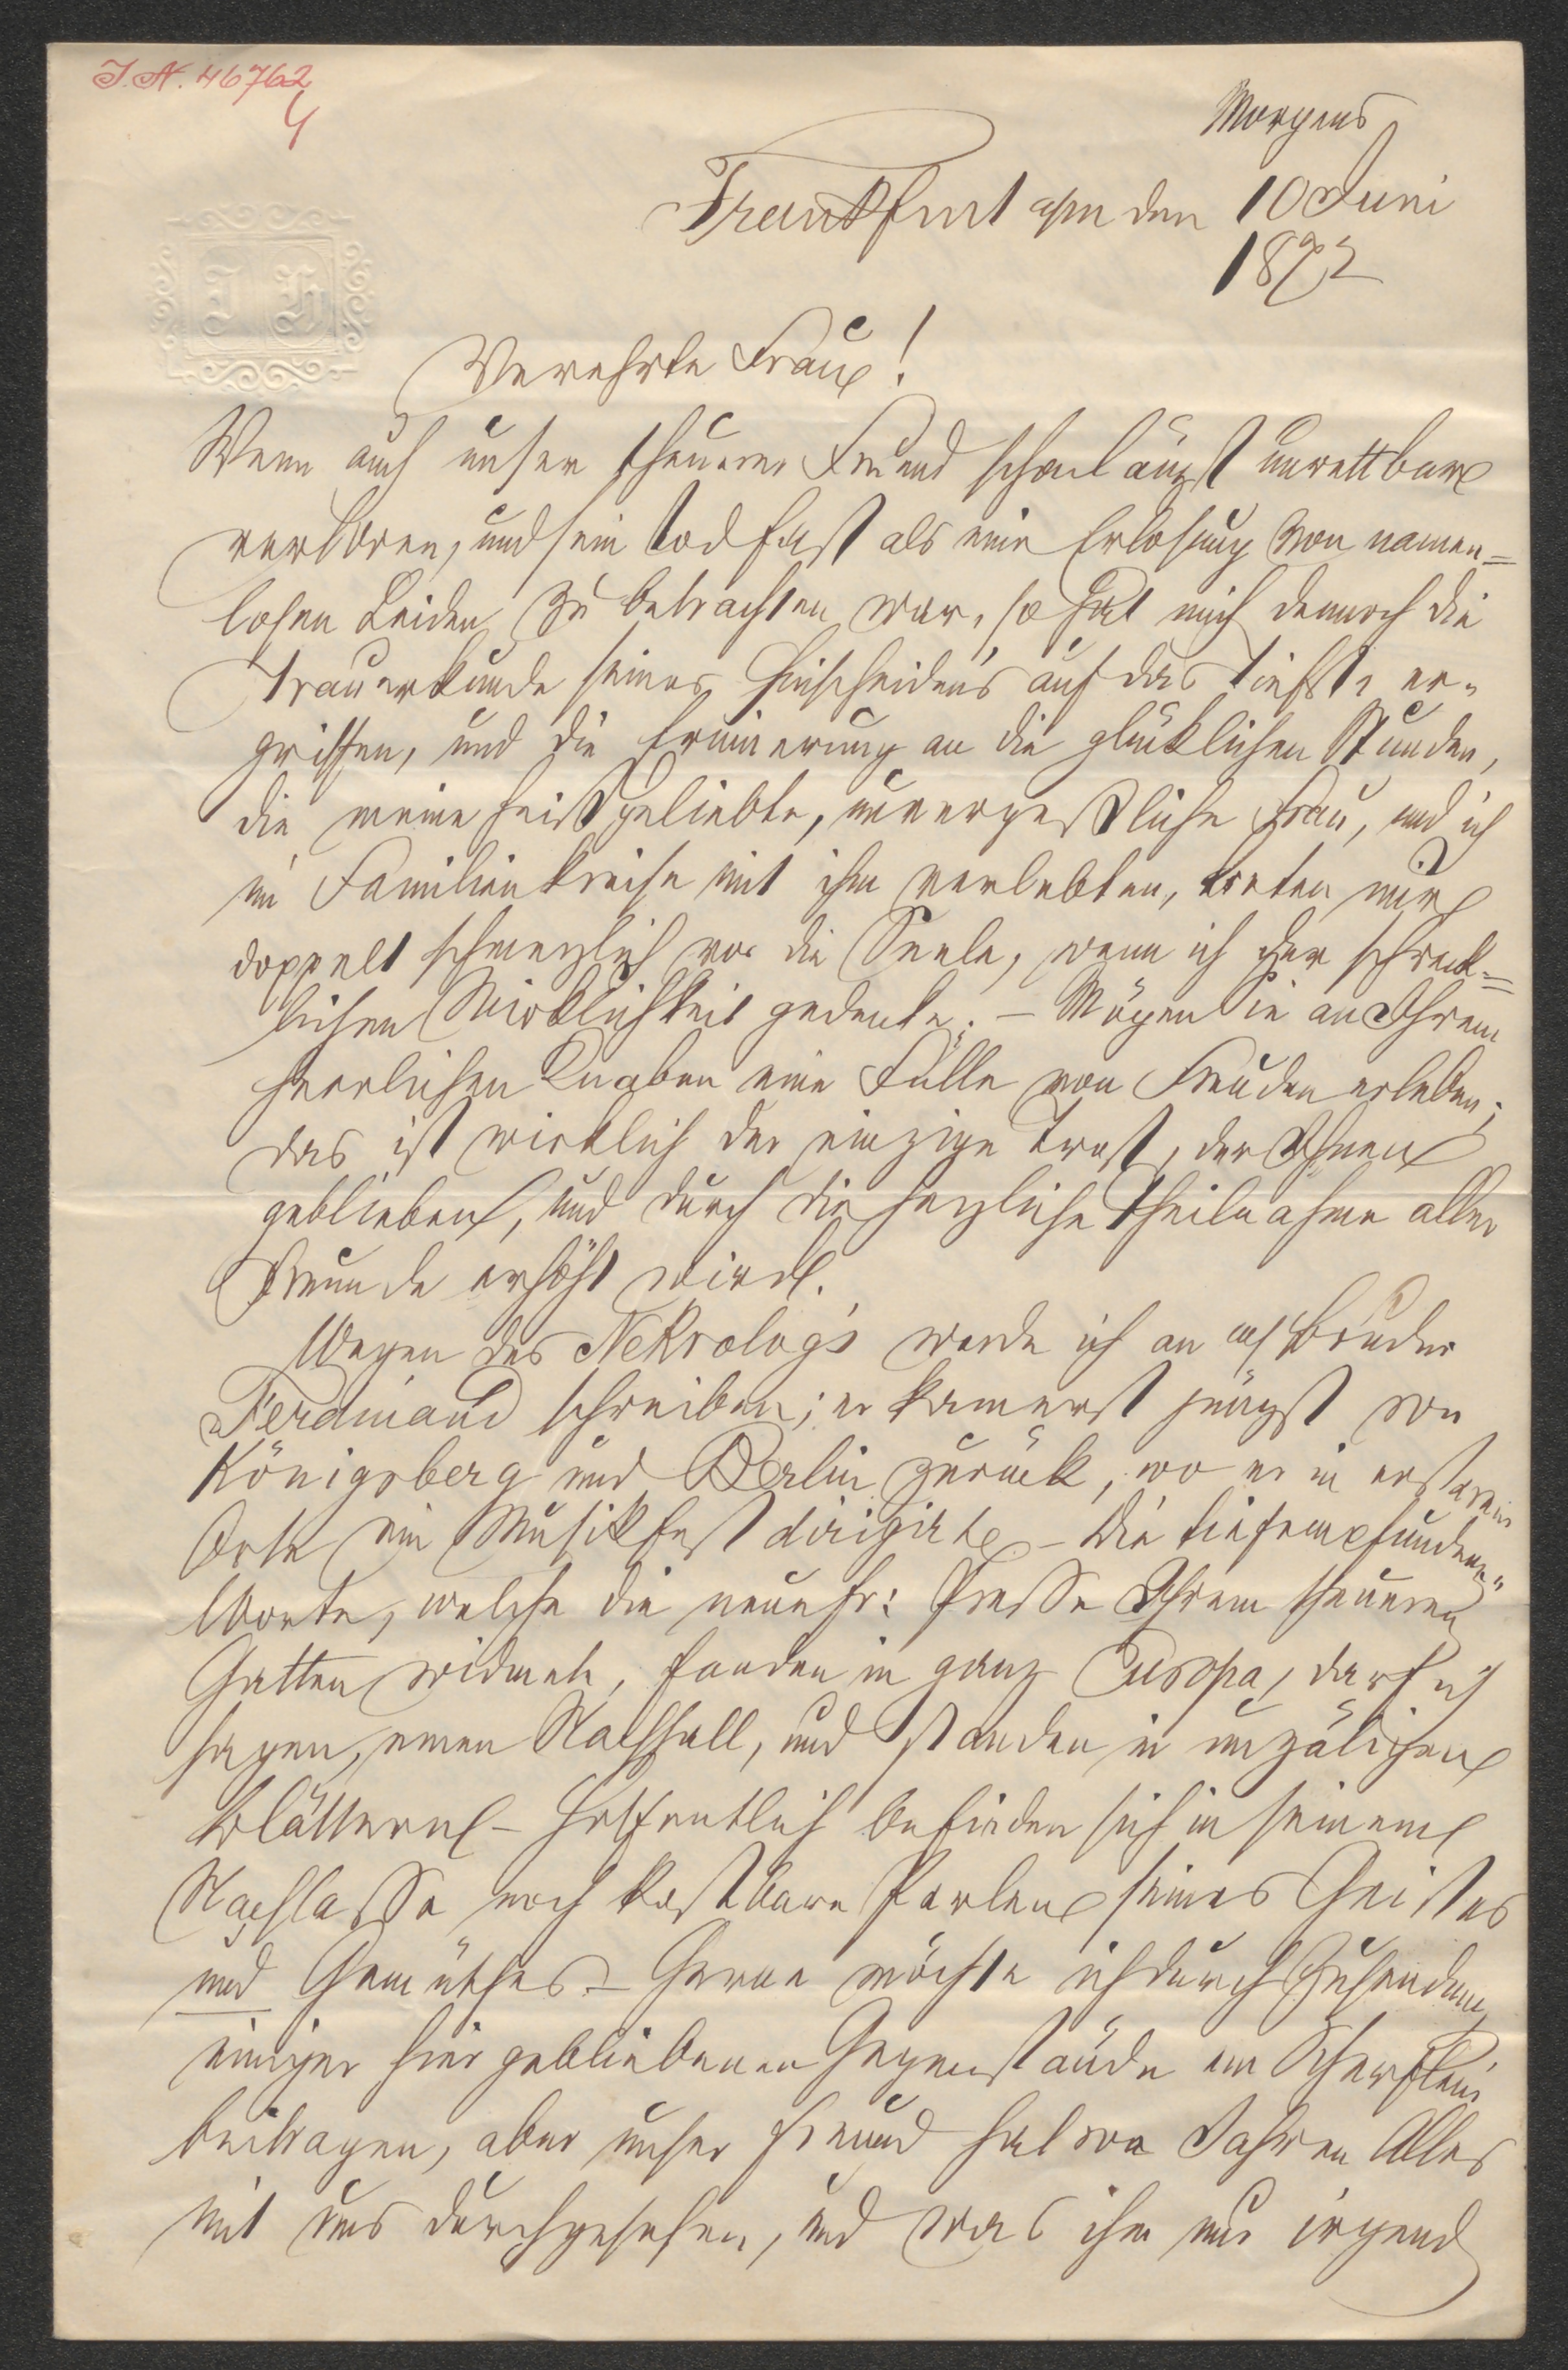 I. N. 46762
4
Morgens
Frankfurt a/m den 10 Juni
1872
I H
Verehrte Frau!
Wenn auch unser theurer Freund schon längst unrettbar
verloren, und sein Tod fast als eine Erlösung von namen=
losen Leiden zu betrachten war, so hat mich dennoch die
Trauerkunde seines Hinscheiden's auf das tiefste er=
griffen, und die Erinnerung an die glücklichen Stunden,
die meine heißgeliebte, unvergeßliche Frau, und ich
im Familienkreise mit ihm verlebten, treten mir
doppelt schmerzlich vor die Seele, wenn ich der schreck=
lichen Wirklichkeit gedenke. – Mögen Sie an Ihrem
herrlichen Knaben eine Fülle von Freuden erleben;
das ist wirklich der einzige Trost, der Ihnen
geblieben, und durch die herzliche Theilnahme aller
Freunde erhöht wird.
Wegen des Nekrolog's werde ich an Bruder
Ferdinand schreiben; er kam erst jüngst von
Königsberg und Berlin zurück, wo er in ersterem
Orte ein Musikfest dirigirte – Die tiefempfundenen
Worte, welche die neue fr: Presse Ihrem theueren
Gatten widmete, fanden in ganz Europa, darf ich
sagen, einen Nachhall, und standen in unzäligen
Blättern – Hoffentlich befinden sich in seinem
Nachlasse noch kostbare Perlen seines Geistes
und Gemüthes. – Gerne möchte ich durch Zusendung
einiger hier gebliebenen Gegenstände ein Scherflein
beitragen, aber unser Freund hat vor Jahren Alles
mit uns durchgesehen, und was ihm nur irgend